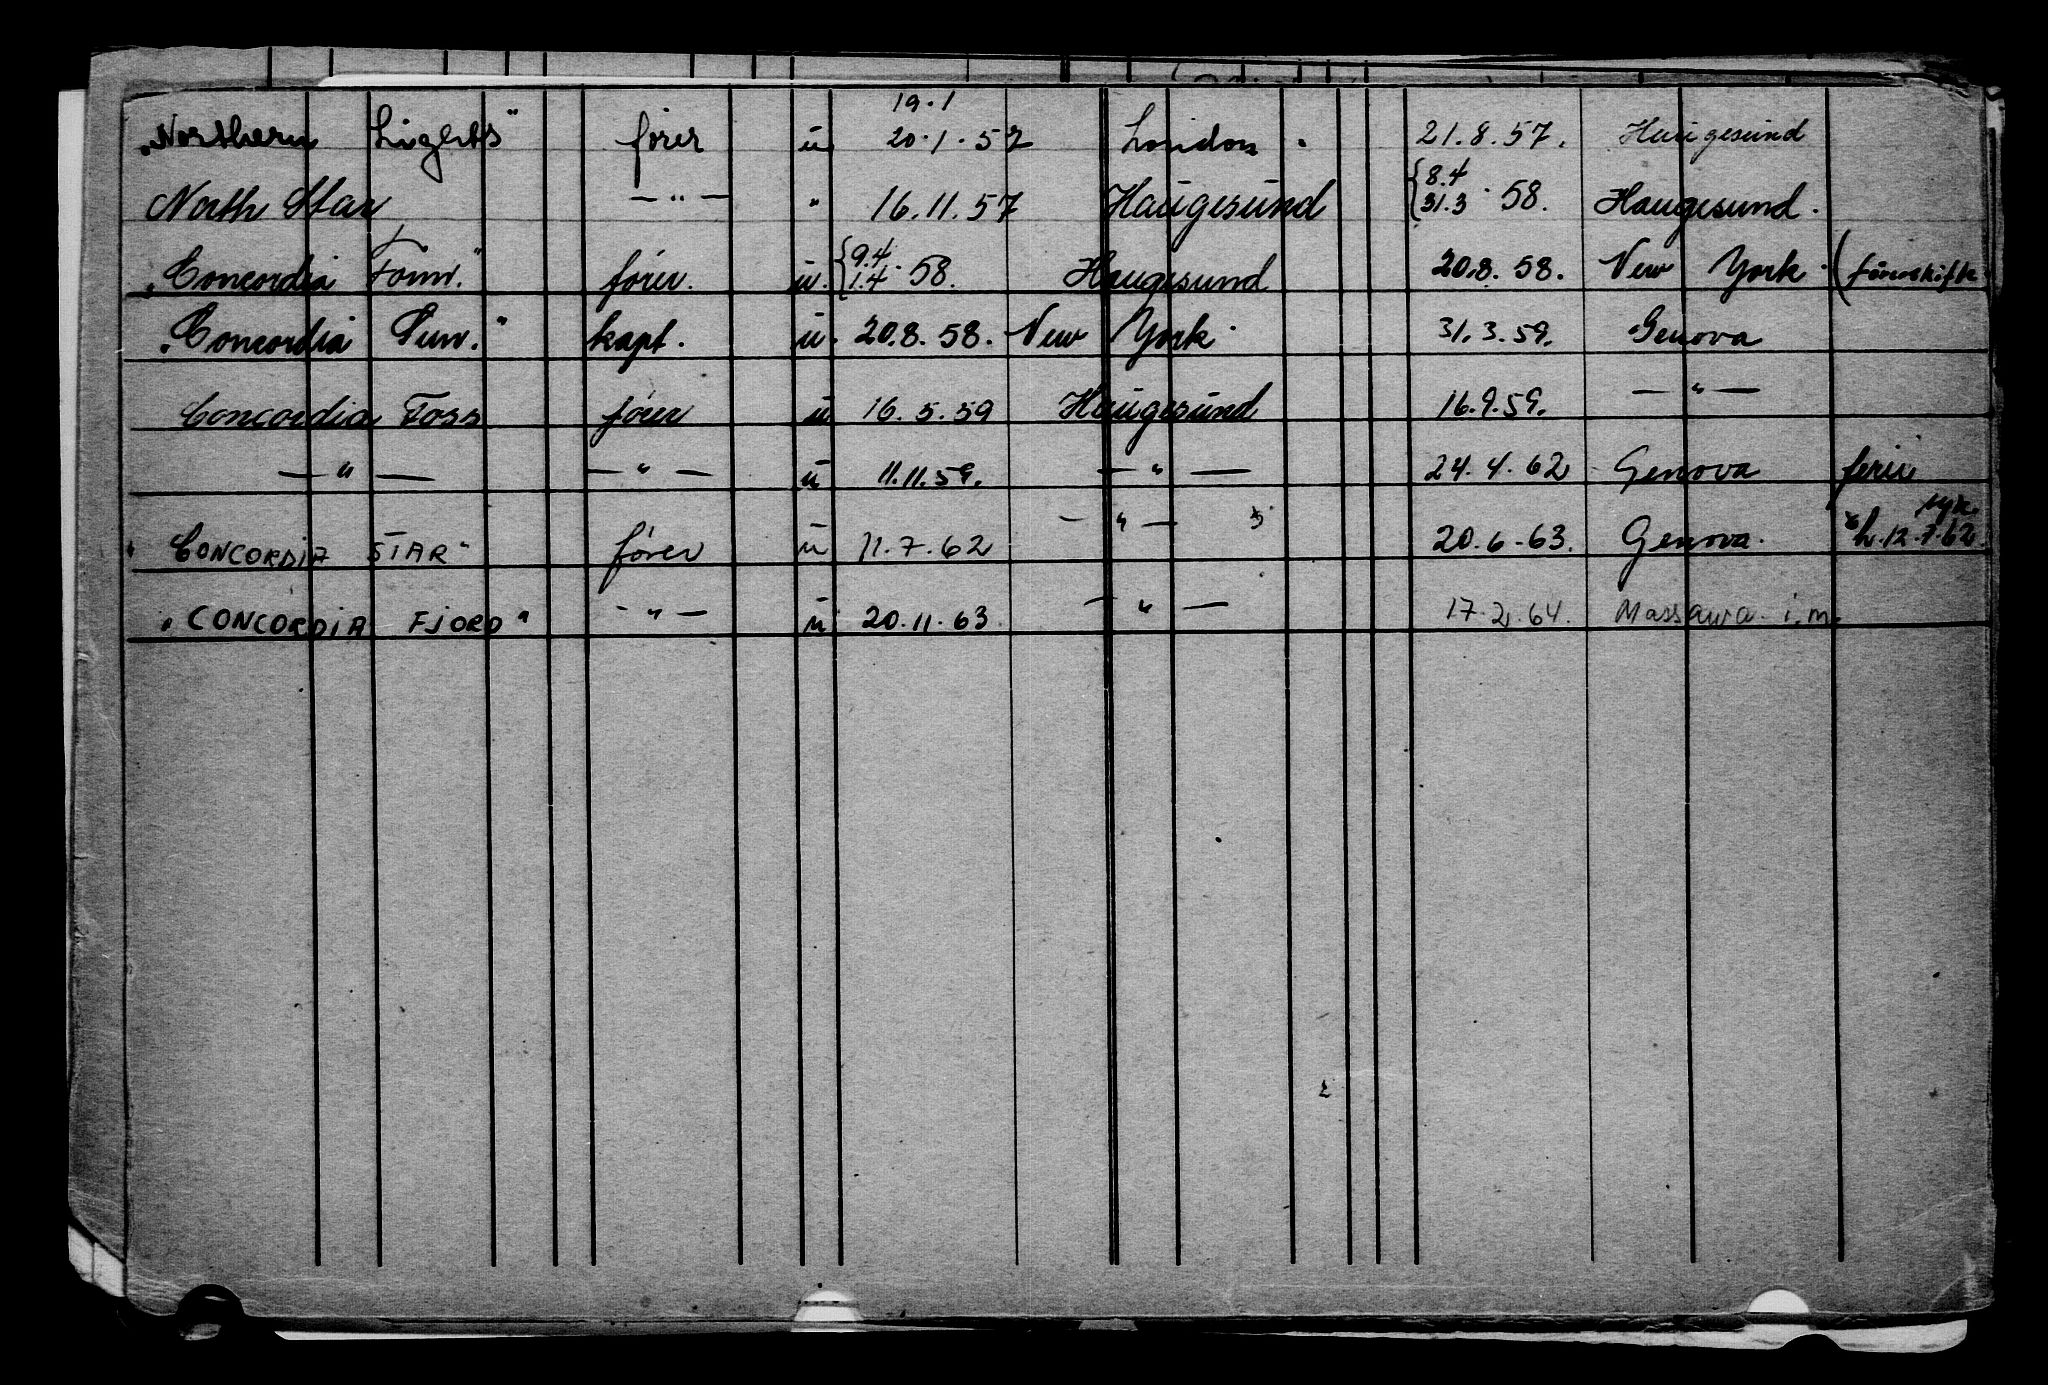 19.1
"Northern Lights" fører u 20.1.57 London. 21.8.57. Haugesund
North Star —"— " 16.11.57 Haugesund {8.4 31.3 .58. Haugesund.
"Concordia Fonn." fører. u. {9.4 1.4 .58. Haugesund 20.8.58. New York. (førerskifte
"Concordia Sun." kapt. u. 20.8.58. New York. 31.3.59. Genova
Concordia Foss fører u 16.5.59 Haugesund 16.9.59. —"—
—"— —"— u 11.11.59. —"— 24.4.62 Genova ferie
"CONCORDIA STAR" fører u 11.7.62 —"— 20.6.63. Genova. syk. h. 12.7.62.
"CONCORDIA FJORD" —"— u 20.11.63 —"— 17.2.64. Massawa i.m.